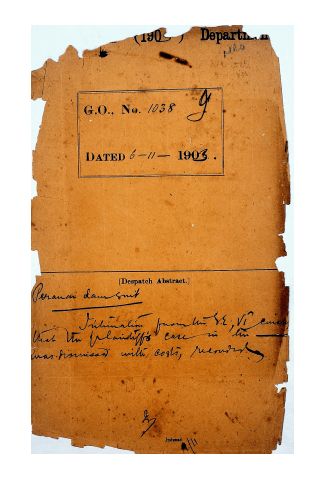 (1903) Department
G.O., No. 1038
DATED 6-11- 1903.
[Despatch Abstract.]
Peranai dam suit
Intimation from the S.E, VI circle
that the plaintiff's case in the
was dismissed with costs, recorded
Indexed